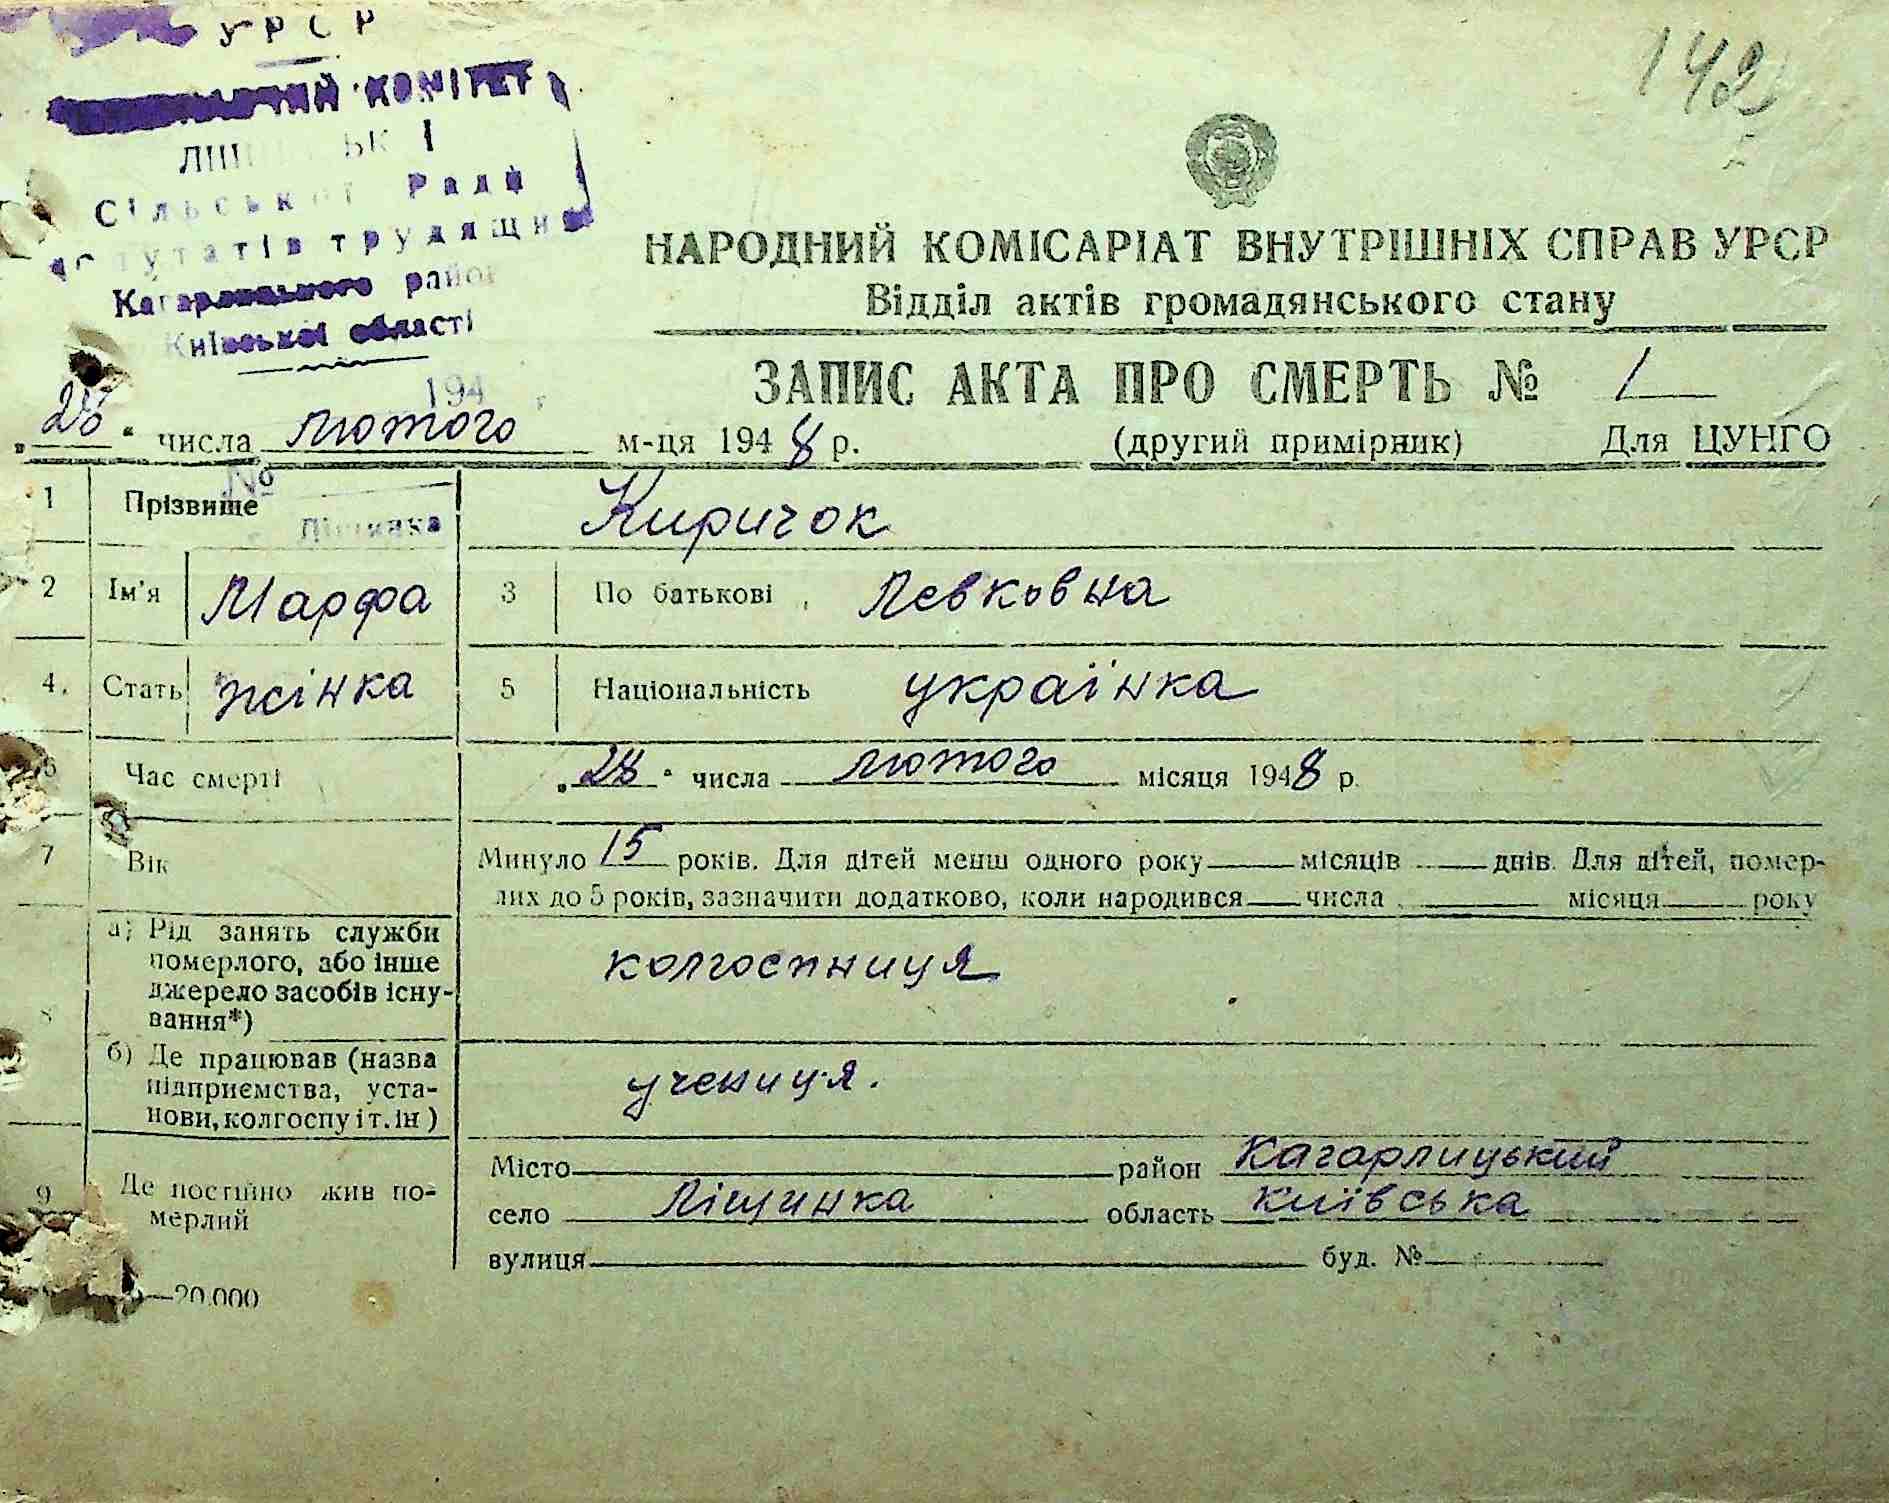 УРСР
КОМІТЕТ
Сільської Ради
трудящи
Кагарлицького район
Київської області
142
НАРОДНИЙ КОМІСАРІАТ ВНУТРІШНІХ СПРАВ УРСР
Відділ актів громадянського стану
ЗАПИС АКТА ПРО СМЕРТЬ № 1
194 г
„28“ числа лютого м-ця 1948 р. (другий примірник) Для ЦУНГО
№
1 Прізвище Киричок
2 Ім'я Марфа 3 По батькові Левковна
4. Стать жінка 5 Національність українка
6 Час смерті „28“ числа лютого місяця 1948 р.
7 Вік Минуло 15 років. Для дітей менш одного року місяців днів. Для дітей, помер-
лих до 5 років, зазначити додатково, коли народився числа місяця року
8 а) Рід занять служби
померлого, або інше
джерело засобів існу-
вання*) колгоспниця
б) Де працював (назва
підприємства, уста-
нови, колгоспу і т. ін) учениця.
9 Де постійно жив по-
мерлий
Місто район Кагарлицький
село Ліщинка область київська
вулиця буд. №
—20.000